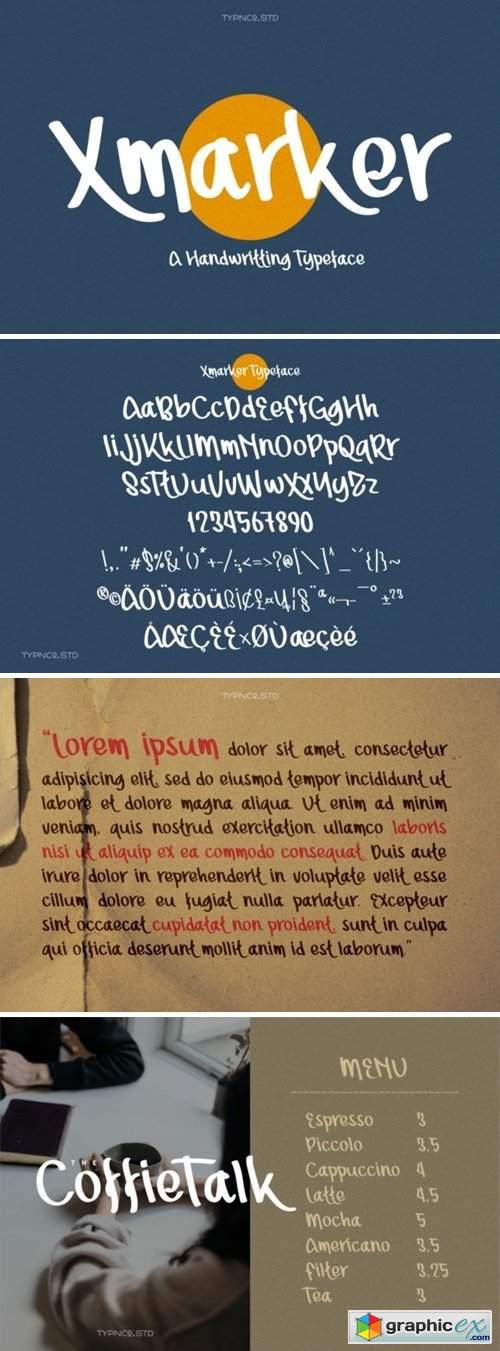 TYPNCO.STD
Xmarker
A Handwritting Typeface
Xmarker Typeface
AaBbCcDdEeFfGgHh
IiJjKkLlMmNnOoPpQqRr
SsTtUuVvWwXxYyZz
1234567890
!,."#$%&'()*+-/:;<=>?@[\]^_`´{|}~
®©ÄÖÜäöüß¡¢£¤¥¦§¨ª«¬-¯°±²³
ÀÅÆÇÈÉ×ØÙàæçèé
TYPNCO.STD
TYPNCO.STD
"Lorem ipsum dolor sit amet, consectetur
adipisicing elit, sed do eiusmod tempor incididunt ut
labore et dolore magna aliqua. Ut enim ad minim
veniam, quis nostrud exercitation ullamco laboris
nisi ut aliquip ex ea commodo consequat. Duis aute
irure dolor in reprehenderit in voluptate velit esse
cillum dolore eu fugiat nulla pariatur. Excepteur
sint occaecat cupidatat non proident, sunt in culpa
qui officia deserunt mollit anim id est laborum."
THE
CoffieTalk
TYPNCO.STD
MENU
Espresso 3
Piccolo 3.5
Cappuccino 4
Latte 4.5
Mocha 5
Americano 3.5
Filter 3.25
Tea 3
graphicex
.com